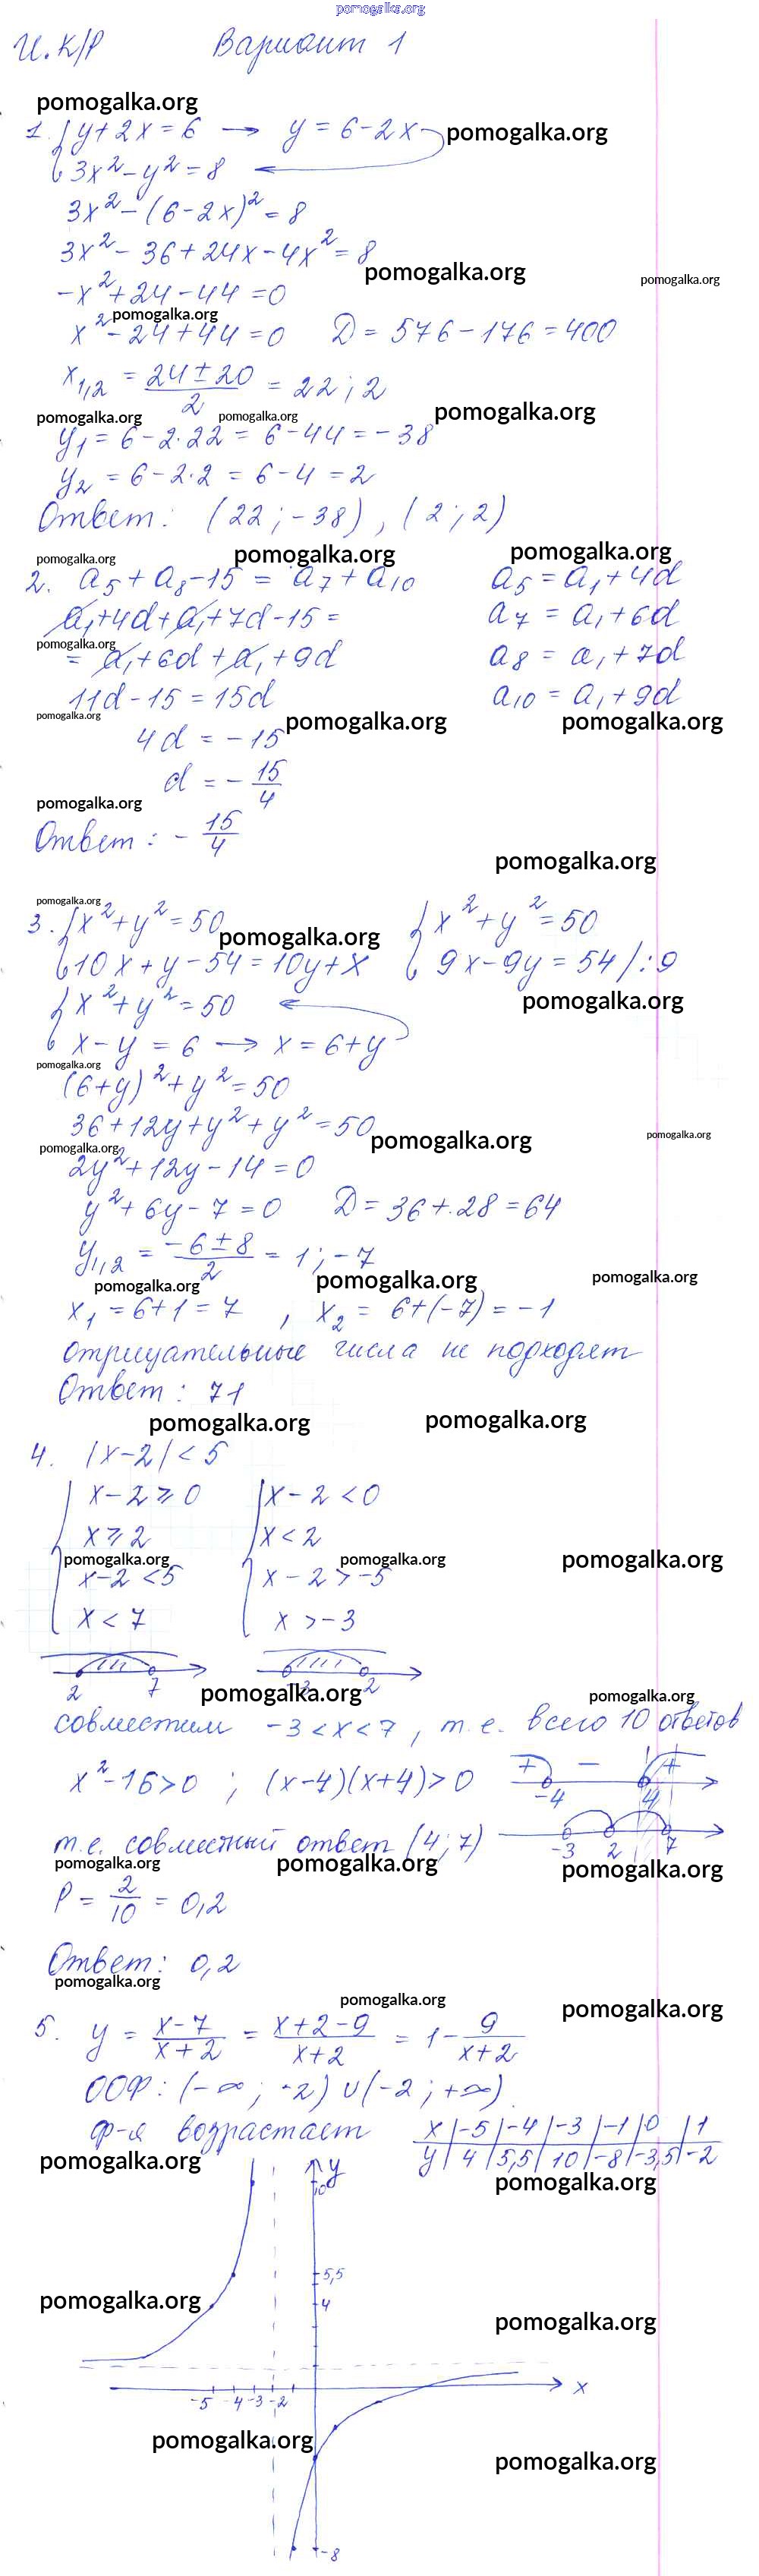 pomogalka.org
И.К/Р Вариант 1
pomogalka.org
1. { y+2x=6 → y=6-2x pomogalka.org
3x²-y²=8
3x²-(6-2x)²=8
3x²-36+24x-4x²=8
pomogalka.org pomogalka.org
-x²+24-44=0
pomogalka.org
x²-24+44=0 D=576-176=400
x₁,₂ = (24±20)/2 = 22; 2
pomogalka.org pomogalka.org pomogalka.org
y₁=6-2·22=6-44=-38
y₂=6-2·2=6-4=2
Ответ: (22; -38), (2; 2)
pomogalka.org pomogalka.org pomogalka.org
2. a₅+a₈-15=a₇+a₁₀ a₅=a₁+4d
a₁+4d+a₁+7d-15= a₇=a₁+6d
pomogalka.org
=a₁+6d+a₁+9d a₈=a₁+7d
11d-15=15d a₁₀=a₁+9d
pomogalka.org pomogalka.org pomogalka.org
4d=-15
d=-15/4
pomogalka.org
Ответ: -15/4
pomogalka.org
pomogalka.org
3. { x²+y²=50 { x²+y²=50
pomogalka.org
10x+y-54=10y+x 9x-9y=54 /:9
{ x²+y²=50 pomogalka.org
x-y=6 → x=6+y
pomogalka.org
(6+y)²+y²=50
36+12y+y²+y²=50
pomogalka.org pomogalka.org pomogalka.org
2y²+12y-14=0
y²+6y-7=0 D=36+28=64
y₁,₂ = (-6±8)/2 = 1; -7
pomogalka.org pomogalka.org pomogalka.org
x₁=6+1=7, x₂=6+(-7)=-1
отрицательные числа не подходят
Ответ: 71
pomogalka.org pomogalka.org
4. |x-2|<5
x-2≥0 x-2<0
x≥2 x<2
pomogalka.org pomogalka.org pomogalka.org
x-2<5 x-2>-5
x<7 x>-3
2 7 -3 2
pomogalka.org pomogalka.org
совместим -3<x<7, т.е. всего 10 ответов
x²-16>0; (x-4)(x+4)>0 + - +
-4 4
т.е. совместный ответ (4; 7) -3 2 7
pomogalka.org pomogalka.org pomogalka.org
P = 2/10 = 0,2
Ответ: 0,2
pomogalka.org
pomogalka.org pomogalka.org
5. y = (x-7)/(x+2) = (x+2-9)/(x+2) = 1 - 9/(x+2)
ООФ: (-∞; -2) ∪ (-2; +∞)
ф-я возрастает x | -5 | -4 | -3 | -1 | 0 | 1
y | 4 | 5,5 | 10 | -8 | -3,5 | -2
pomogalka.org pomogalka.org
y
10
5,5
4
pomogalka.org pomogalka.org
-5 -4 -3 -2 x
pomogalka.org pomogalka.org
-8